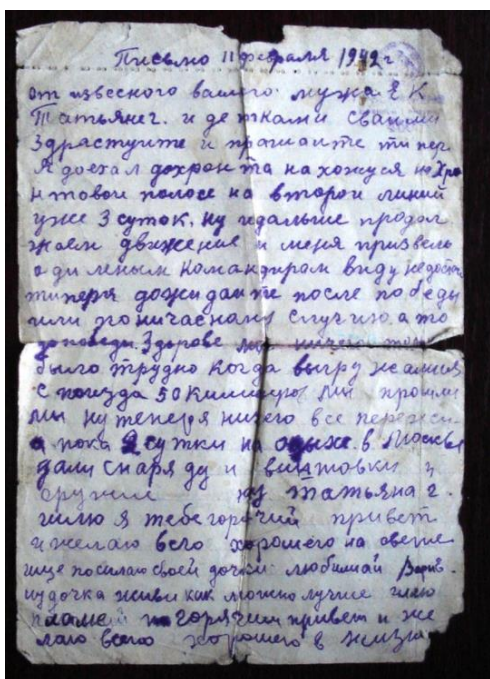 Письмо 11 февраля 1942 г
от извесного вашего мужа Е К
Татьянег. и детками своими
Здраствуите и прашаите типер
Я доехал дохронта нахожуся на Хро
нтовои полосе на второи линий
уже 3 суток, ну идальше продол
жаем движение и меня призвель
оди леным командирам виду недоста
типеря дожидаите после победы
или огоничаснаго случию, а то
до победи. Здорове мы ничего толь
было трудно когда выгружалися
с поизда 50 километ мы прошли
мы ну теперя ничего все пережи
а пока 2 сутки на одыхе. в Москве
дали снаряду и винтовки и
ну Татьяна г.
шлю я тебе горячий привет
и желаю всго хорошего на свете
ище посылаю своей дочки любимай
дочка живи как можно лучше шлю
горячии привет и же
лаю всего хорошего в жизни